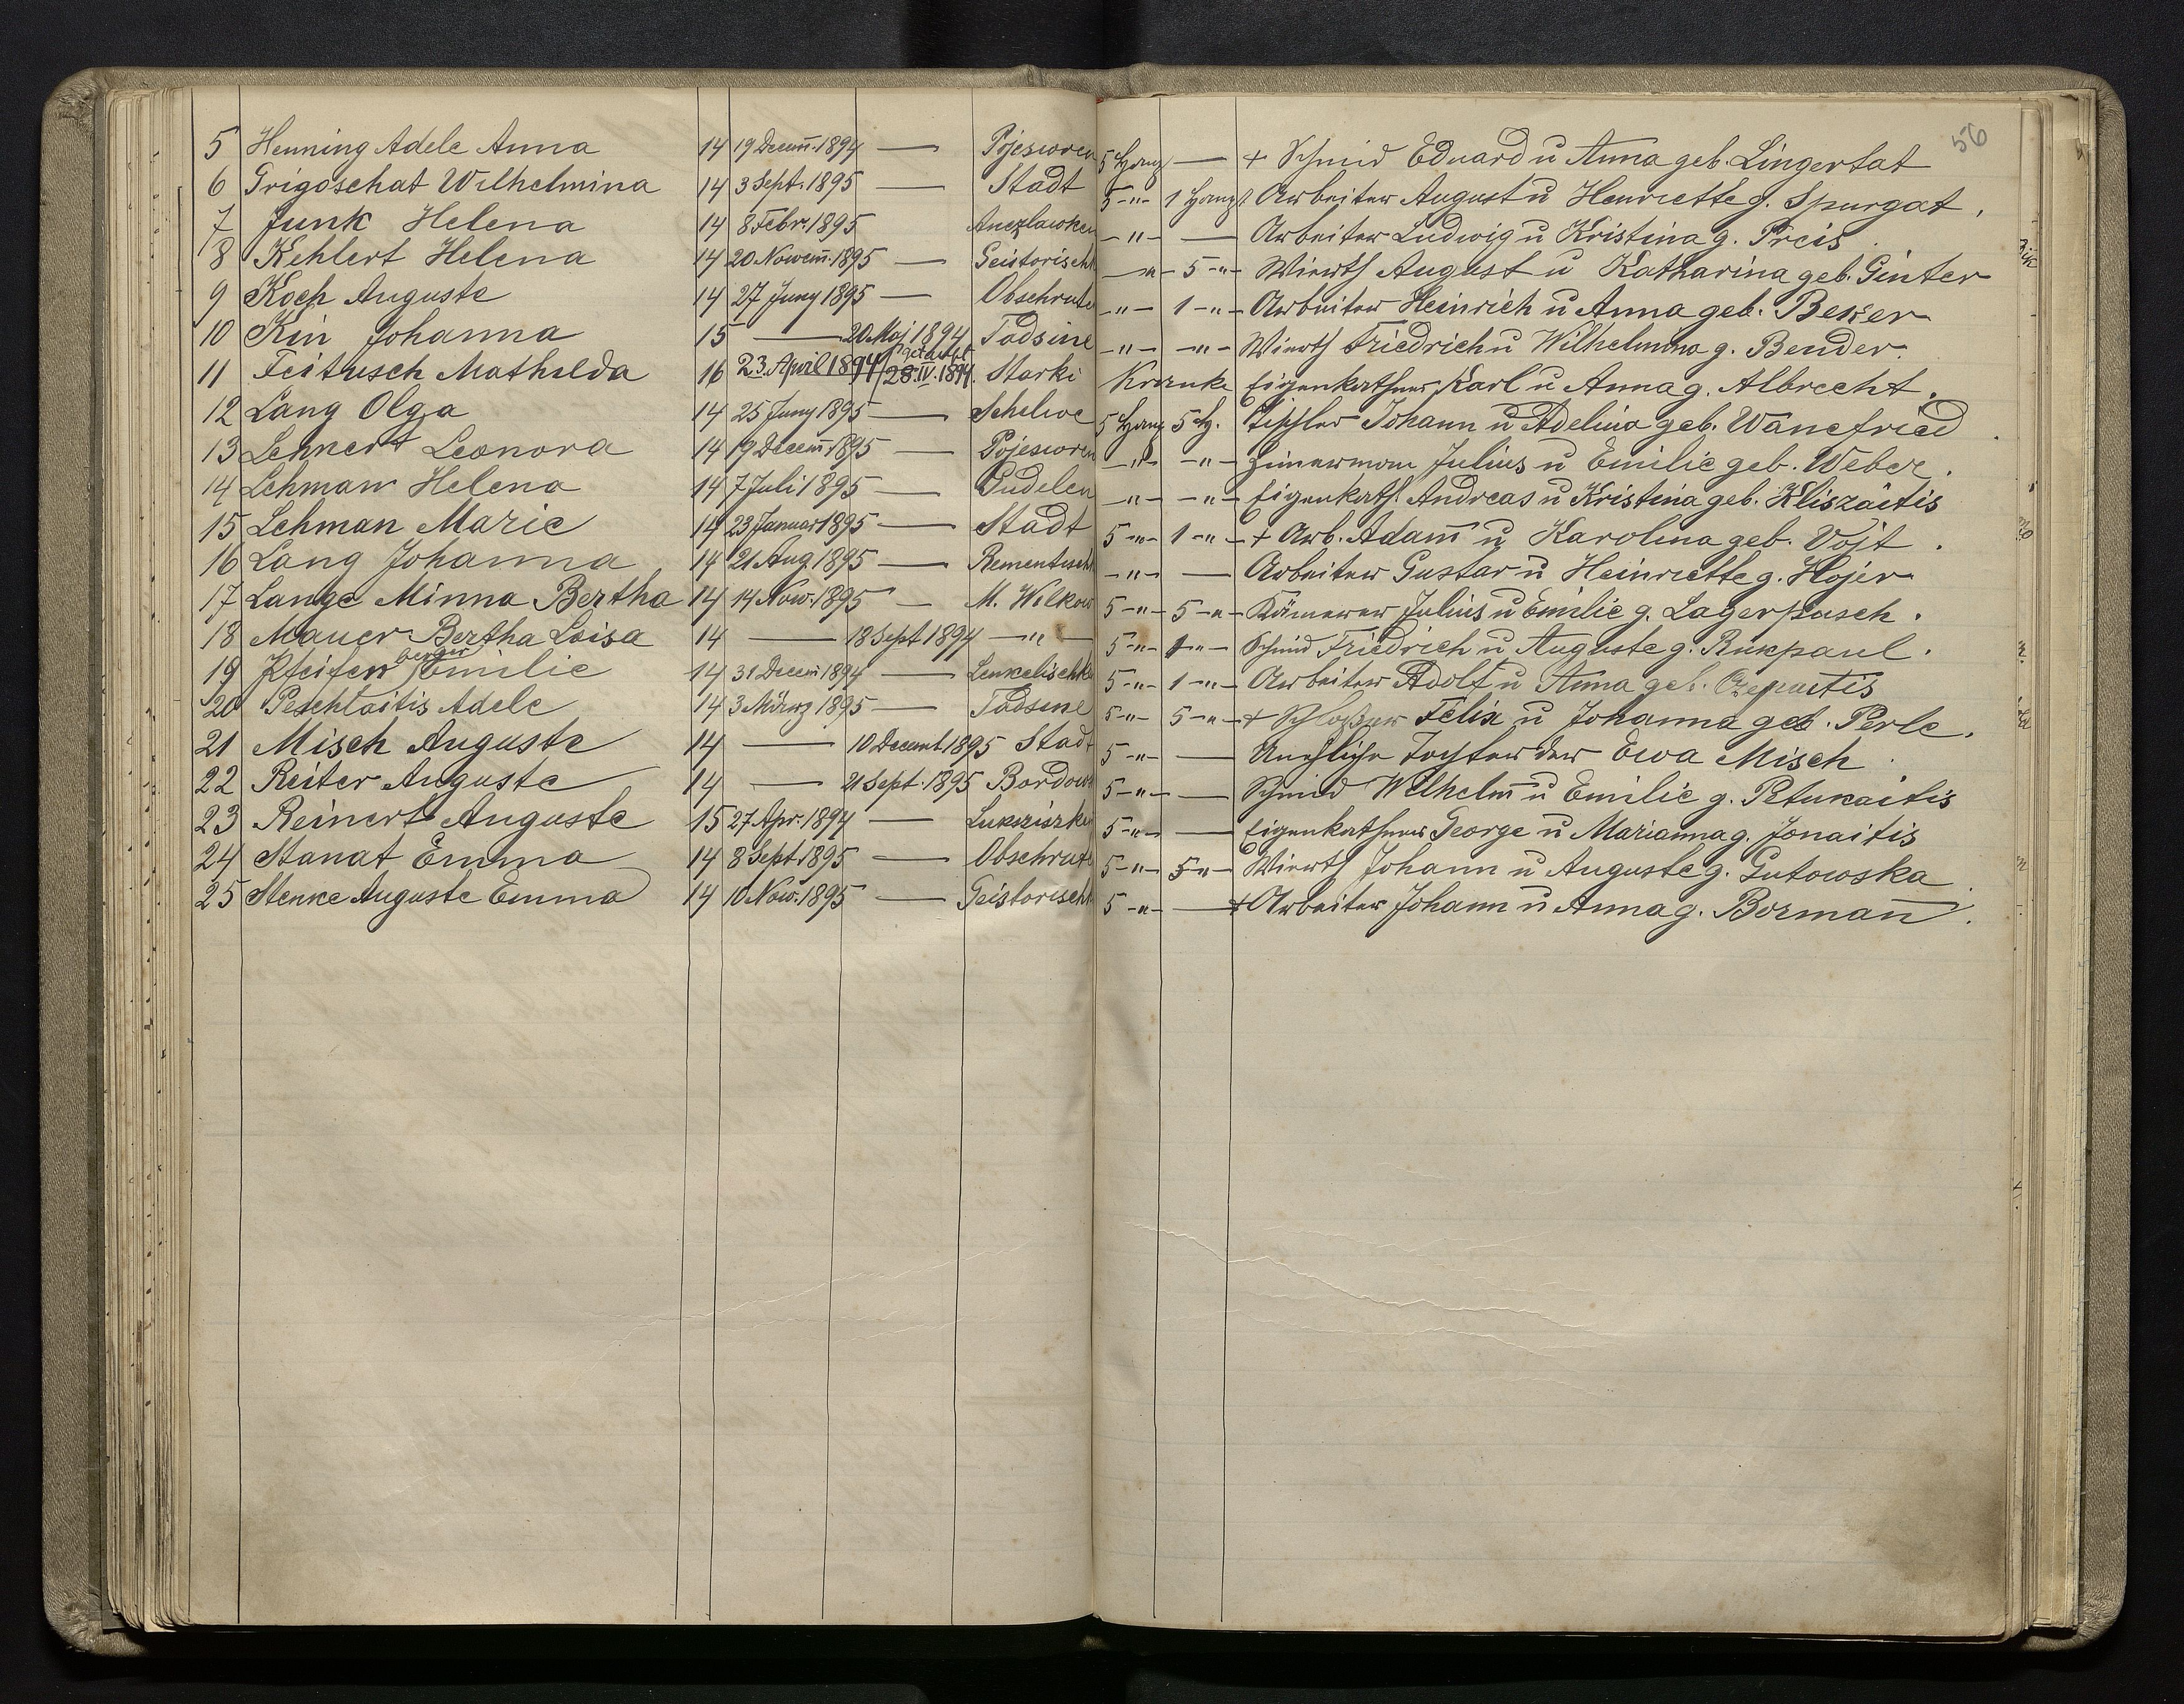 56
5 Henning Adele Anna 14 19 Decem̄. 1894 — Pojesworen 5 Hauptst — + Schmid Eduard u Anna geb. Lingertat
6 Grigoschat Wilhelmina 14 3 Sept. 1895 — Stadt 5 -"- 1 Hauptst Arbeiter August u Henriette g. Spurgat.
7 Junk Helena 14 8 Febr. 1895 -"- — Arbeiter Ludwig u Kristina g. Preis
8 Kehlert Helena 14 20 Novem̄. 1895 — Geistorischk -"- 5 -"- Wierth August u Katharina geb. Ginter
9 Koch Auguste 14 27 Juny 1895 — Obschrute -"- 1 -"- Arbeiter Heinrich u Anna geb. Beker
10 Kin Johanna 15 — 20 Maj 1894 Todsine -"- -"- Wierth Friedrich u Wilhelmina g. Bender.
11 Feitusch Mathilda 16 23. April 1894 getauft 28.IV.1894. Starki Kranke Eigenkathner Karl u Anna g. Albrecht.
12 Lang Olga 14 25 Juny 1895 — 5 Haup 5 H. Tischler Johann u Adelina geb. Wanefried
13 Lehnert Leonora 14 19 Decem̄ 1895 — Pojesworen -"- -"- Zimerman Julius u Emilie geb. Weber.
14 Lehman Helena 14 7 Juli 1895 — Pudelen -"- -"- Eigenkath. Andreas u Kristina geb. Kliszäitis
15 Lehman Marie 14 23 Januar 1895 — Stadt 5 -"- 1 -"- + Arb. Adam̄ u Karolina geb. Vojt.
16 Lang Johanna 14 21 Aug 1895 — Rementisch -"- — Arbeiter Gustav u Heinriette g. Hojer
17 Lange Minna Bertha 14 14 Now. 1895 — M. Wilkow 5 -"- 5 -"- Kämerer Julius u Emilie g. Lagerpusch.
18 Mauer Bertha Loisa 14 — 18 Sept 1894 -"- 5 -"- 1 -"- Schmid Friedrich u Auguste g. Rukpaul.
19 Pfeifenberger Emilie 14 31 Decem̄ 1894 — Lenkelischke 5 -"- 1 -"- Arbeiter Adolf u Anna geb.
20 Peschtaitis Adele 14 3 Märwz 1895 — Todsine 5 -"- 5 -"- + Schlosser Felix u Johanna geb. Perle.
21 Misch Auguste 14 — 10 Decemb. 1895 Stadt 5 -"- — Unehliche Tochter der Ewa Misch
22 Reiter Auguste 14 — 21 Sept. 1895 Bordow 5 -"- — Schmid Wilhelm̄ u Emilie g. Petukaitis
23 Reinert Auguste 15 27 Apr. 1894 — Lukszizke 5 -"- — Eigenkathner George u Marianna g. Jonaitis
24 Stanat Emma 14 8 Sept 1895 — Obschrute 5 -"- 5 -"- Wierth Johann u Auguste g. Gutowska
25 Stenke Auguste Emma 14 10 Now. 1895 — Geistorischk 5 -"- — + Arbeiter Johann u Anna g. Borman̄.